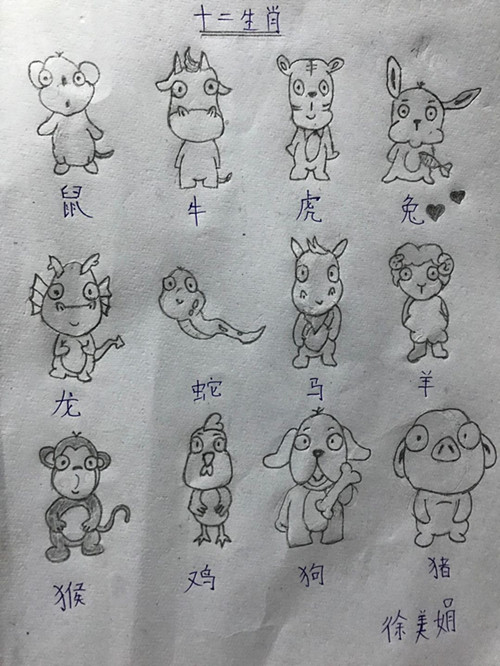 十二生肖
鼠 牛 虎 兔
龙 蛇 马 羊
猴 鸡 狗 猪
徐美娟